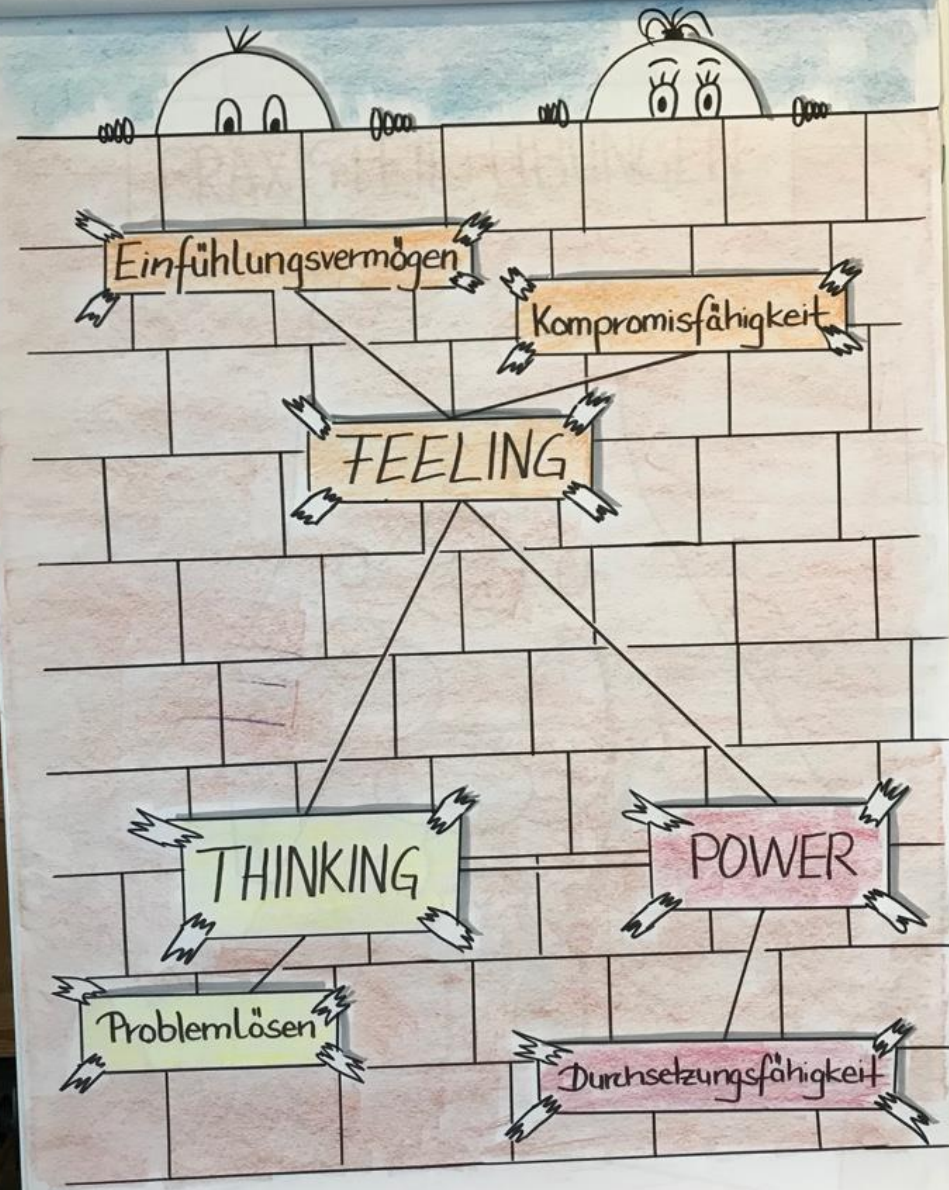 Einfühlungsvermögen
Kompromisfähigkeit
FEELING
THINKING
POWER
Problemlösen
Durchsetzungsfähigkeit